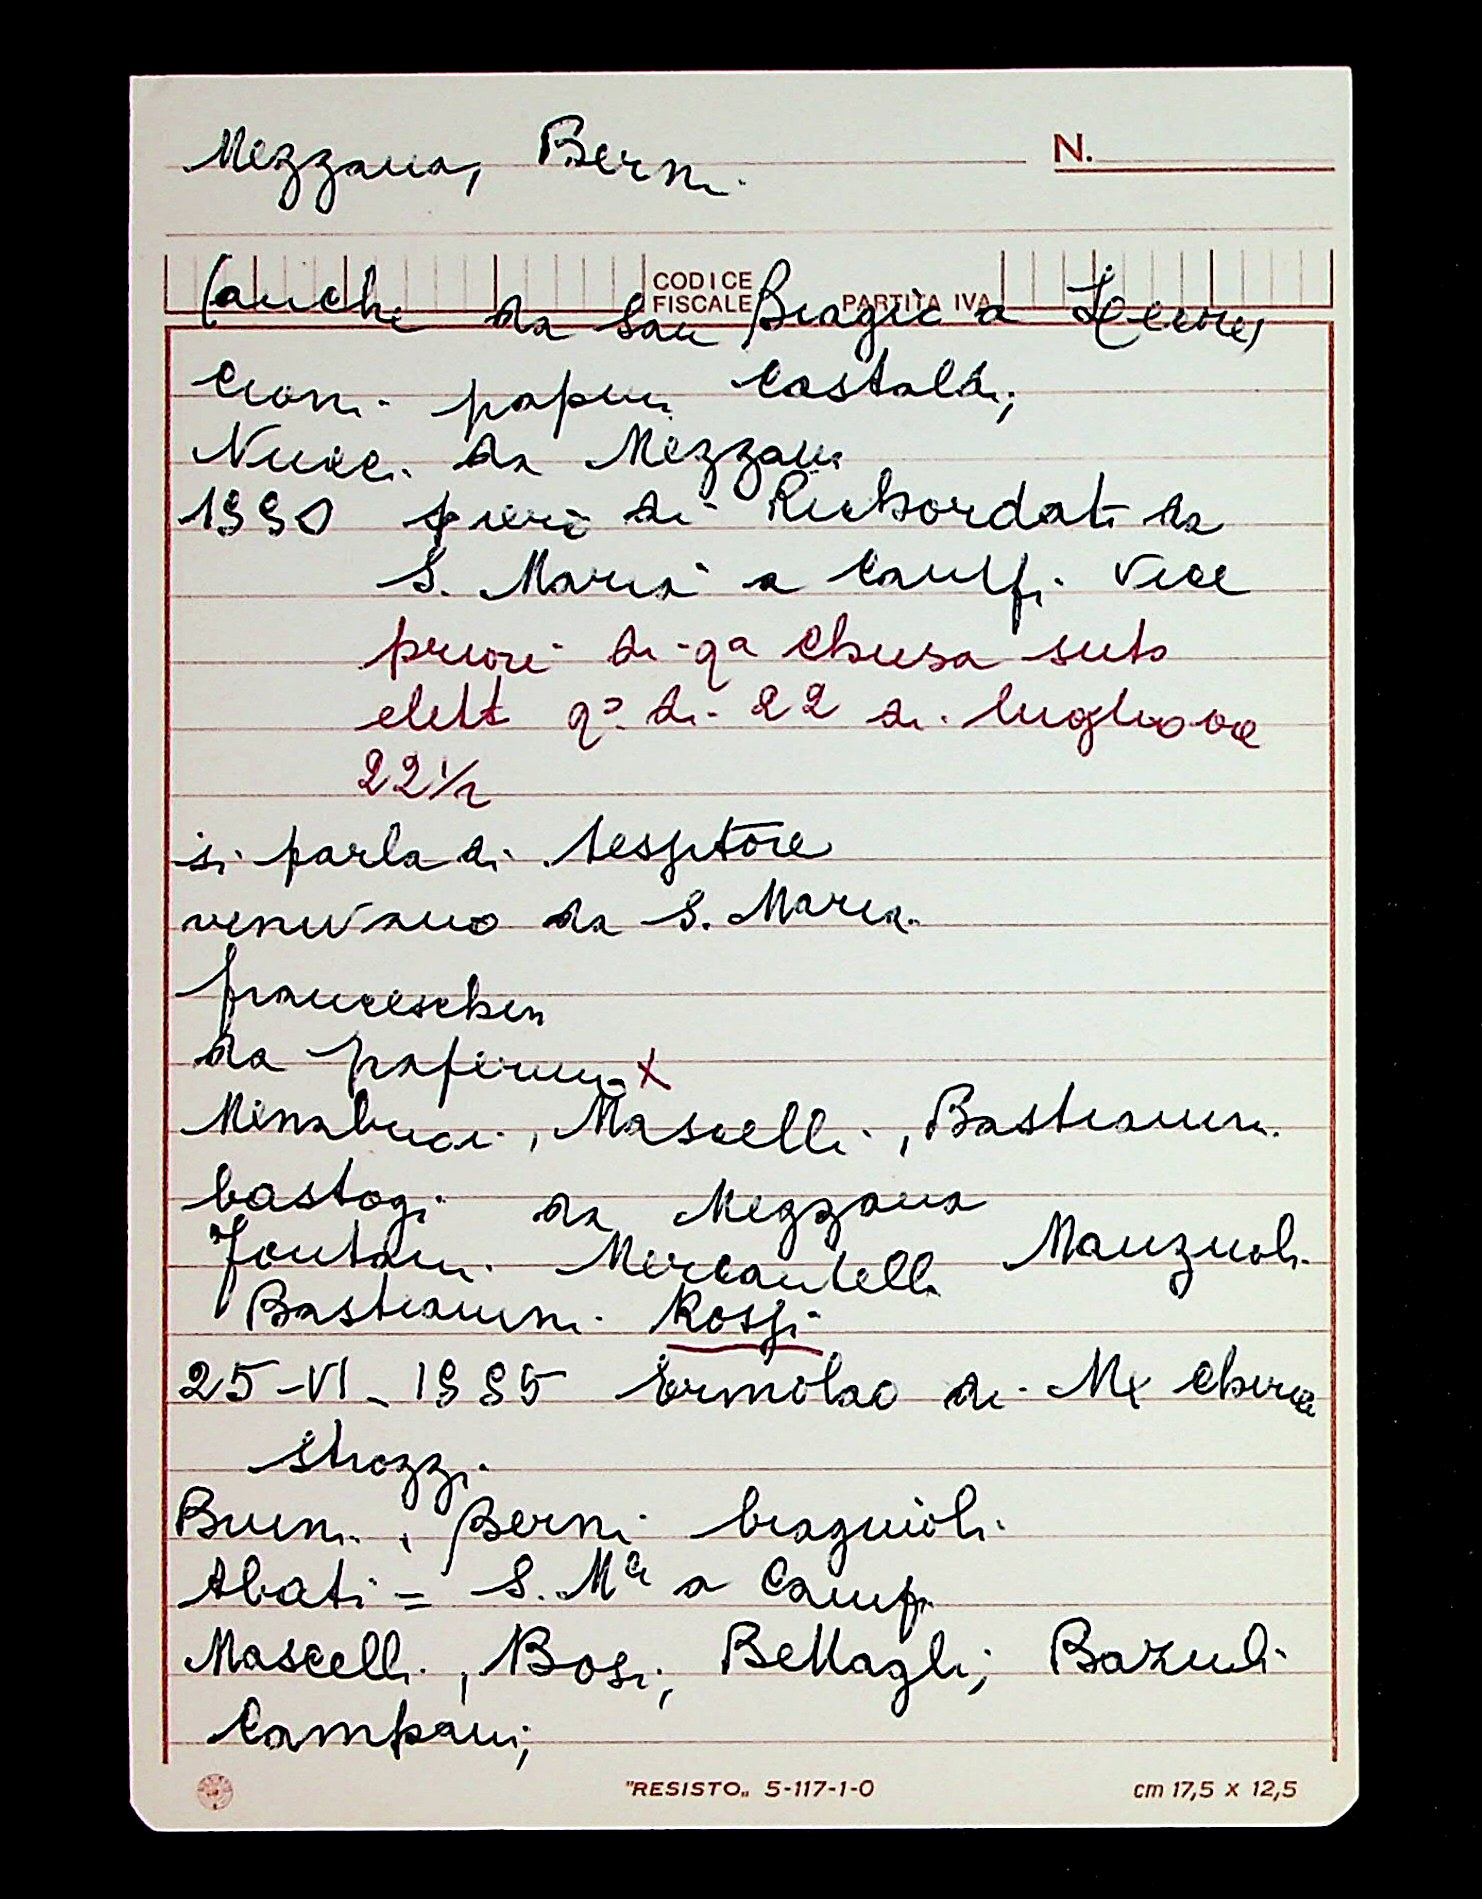 Mezzana, Berni.
N.
CODICE FISCALE PARTITA IVA
(anche da San Biagio a
Cioni. papini Castaldi;
Nucci. da Mezzani
1990 piero di Rubordati da
S. Maria a Camp. vice
priori di qa chiesa suto
elett qo. di. 22 di. luglio ore
22 1/2
si parla di.
venivano da S. Maria.
franceschini
da x
Minabuci., Mascelli., Bastianini.
bastogi da Mezzana
Fontani. Mercantelli Manzuoli.
Bastianini. Rossi.
25-VI-1995 Ermolao di.
Strozzi.
Buini., Berni. bragnioli.
Abati = S. Ma a Camp.
Mascelli., Bosi, Bettagli; Bazuli.
Campani;
"RESISTO" 5-117-1-0
cm 17,5 x 12,5